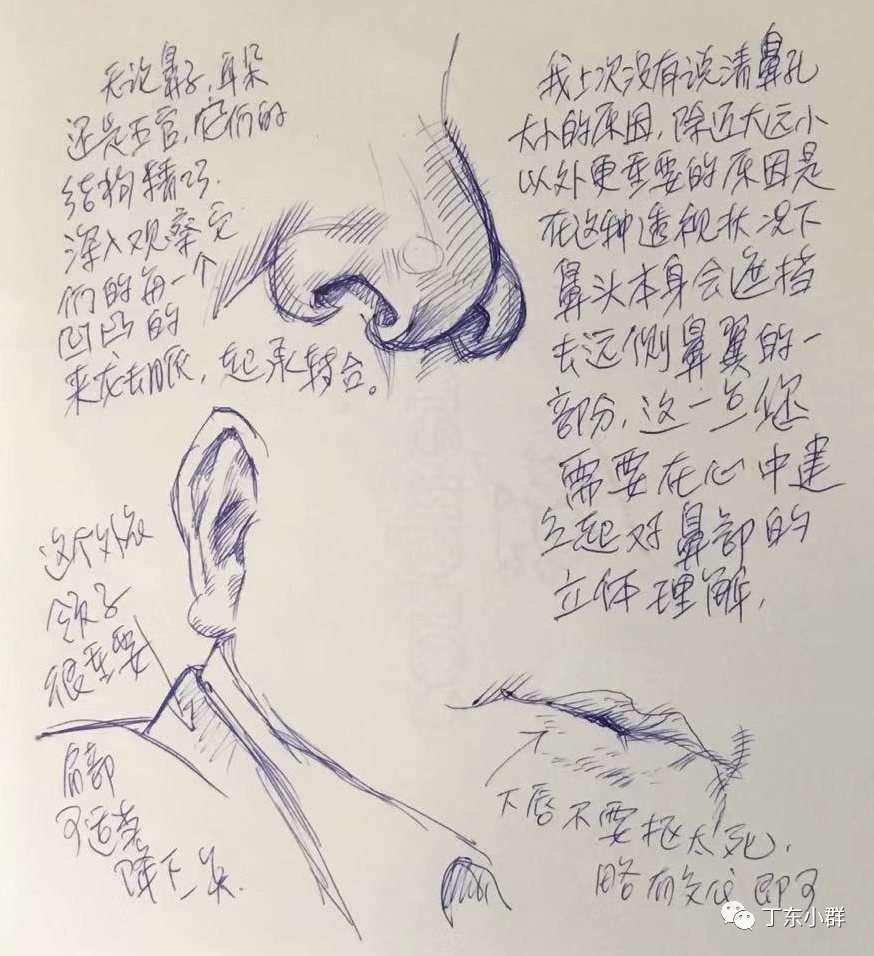 无论鼻子,耳朵
还是五官,它们的
结构精巧.
深入观察它
们的每一个
凹凸的
来龙去脉,起承转合。
我上次没有说清鼻孔
大小的原因,除近大远小
以外更重要的原因是
在这种透视状况下
鼻头本身会遮挡
去远侧鼻翼的一
部分,这一点您
需要在心中建
立起对鼻部的
立体理解,
这个外衣
领子
很重要
肩部
可适当
降下一点.
下唇不要抠太死,
略有交代即可
丁东小群